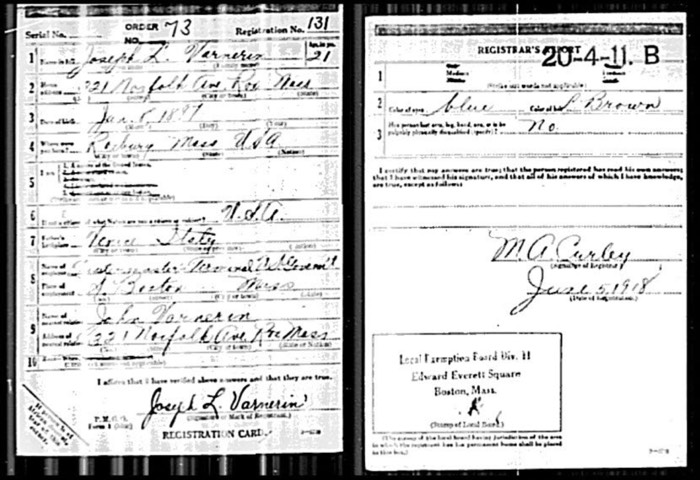 Serial No. ORDER NO. 73 Registration No. 131
1 Name in full Joseph L. Varnerin Age, in yrs. 21
(Family name)
2 Home address 21 Norfolk Ave Rox Mass
(City or town) (State)
3 Date of birth Jan. 8, 1897
(Day) (Year)
4 Where were you born? Roxbury Mass USA
(City or town) (State) (Nation)
5 I am
6 If not a citizen of what Nation are you a citizen or subject? U.S.A.
7 Father's birthplace Venice Italy
8 Name of employer Quartermaster Terminal
Place of employment S. Boston Mass
9 Name of nearest relative John Varnerin
Address of nearest relative 21 Norfolk Ave Rox Mass
(City or town) (State or Nation)
10
I affirm that I have verified above answers and that they are true.
Joseph L. Varnerin
(Signature or Mark of Registrant.)
P. M. G. O.
Form 1
REGISTRATION CARD.
REGISTRAR'S REPORT
20-4-11. B
1 Medium
(Strike out words not applicable)
2 Color of eyes blue Color of hair L. Brown
3 Has person lost arm, leg, hand, eye, or is he palpably physically disqualified (specify)? No.
I certify that my answers are true; that the person registered has read his own answers; that I have witnessed his signature, and that all of his answers of which I have knowledge, are true, except as follows:
M. A. Curley
(Signature of Registrar)
June 5, 1918
(Date of Registration.)
Local Exemption Board Div. 11
Edward Everett Square
Boston, Mass.
(Stamp of Local Board)
(The stamp of the local board having jurisdiction of the area in which the registrant has his permanent home shall be placed in this box.)